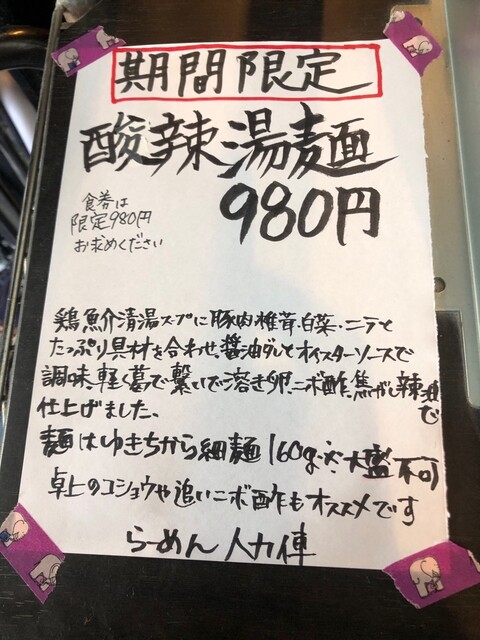 期間限定
酸辣湯麺
980円
食券は
限定980円
お求めください
鶏魚介清湯スープに豚肉椎茸.白菜.ニラと
たっぷり具材を合わせ、醤油ダレとオイスターソースで
調味、軽く葛で繋いで溶き卵、ニボ酢、焦がし辣油で
仕上げました、
麺はゆきちから細麺160g.※大盛不可
卓上のコショウや追いニボ酢もオススメです
らーめん 人力俥